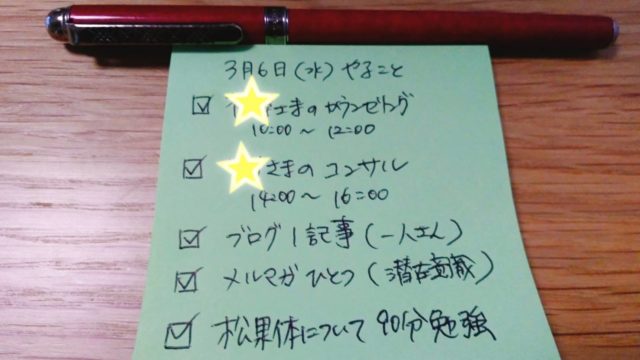 3月6日(水) やること
さまのカウンセリング
10:00 〜 12:00
さまの コンサル
14:00 〜 16:00
ブログ1記事(一人さん)
メルマガ ひとつ(潜在意識)
松果体について 90分勉強